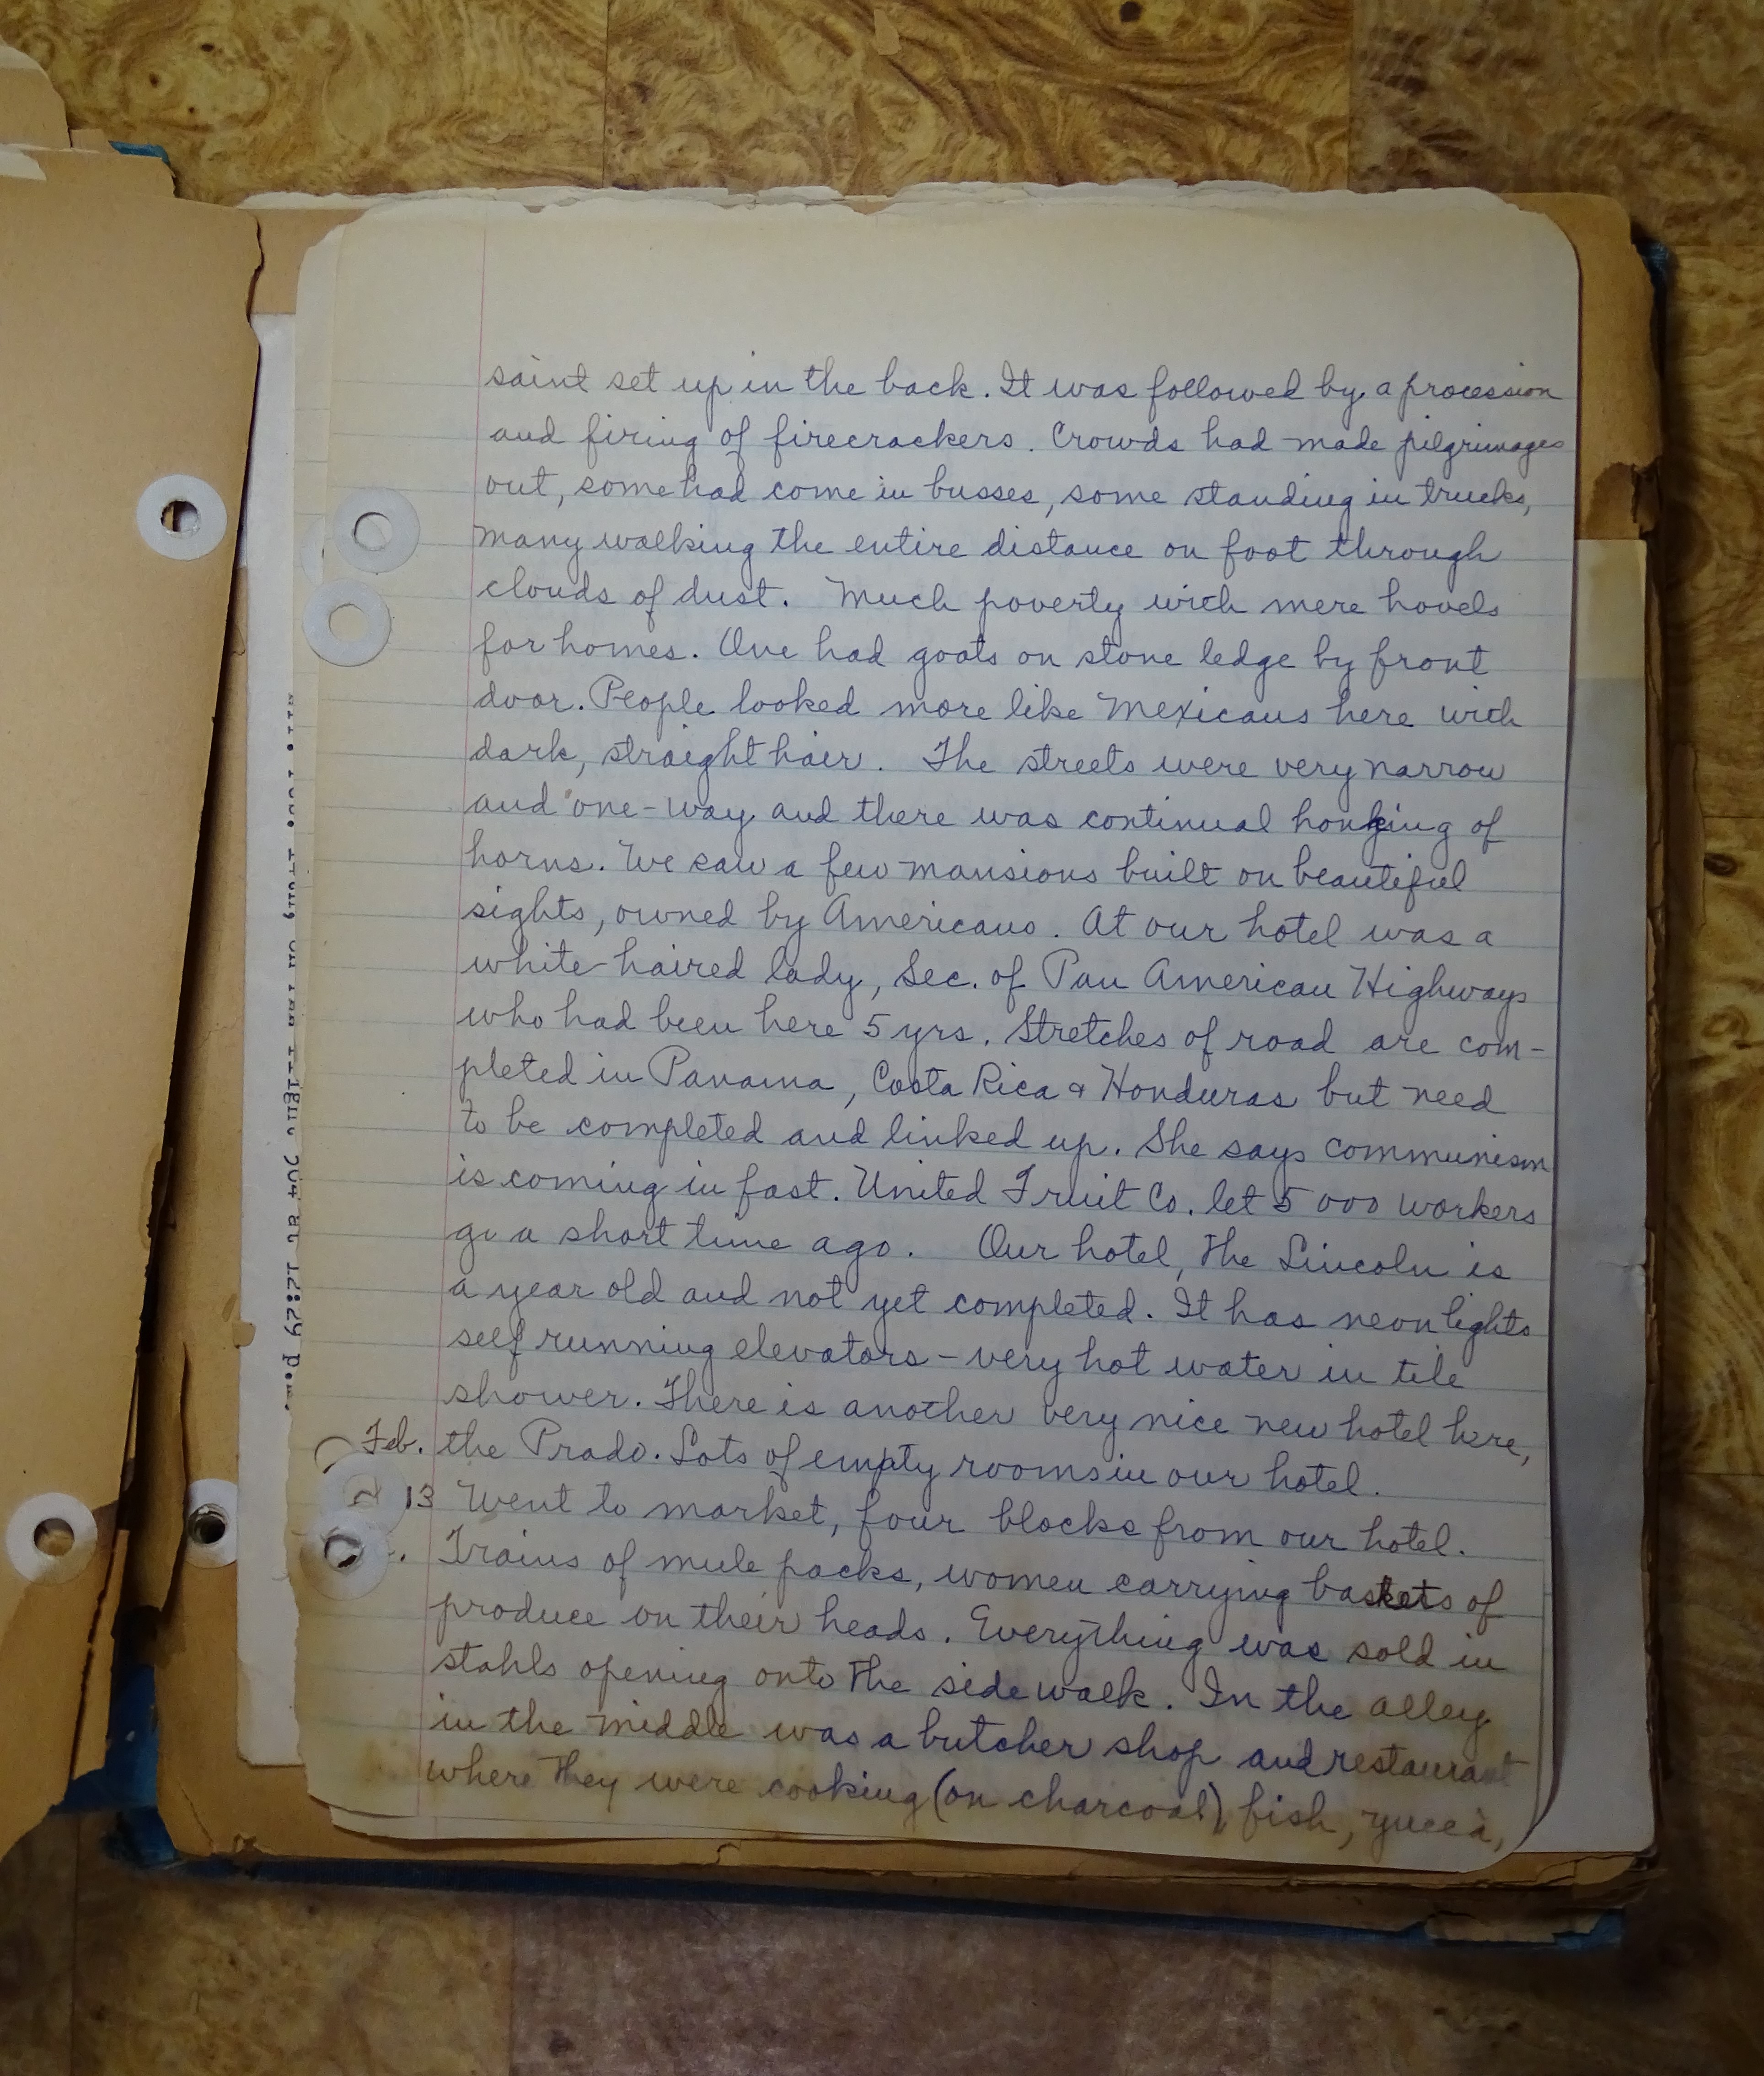 saint set up in the back. It was followed by a procession
and firing of firecrackers. Crowds had made pilgrimages
out, some had come in busses, some standing in trucks,
many walking the entire distance on foot through
clouds of dust. Much poverty with mere hovels
for homes. One had goats on stone ledge by front
door. People looked more like Mexicans here with
dark, straight hair. The streets were very narrow
and one-way and there was continual honking of
horns. We saw a few mansions built on beautiful
sights, owned by Americans. At our hotel was a
white-haired lady, Sec. of Pan American Highways
who had been here 5 yrs. Stretches of road are com-
pleted in Panama, Costa Rica & Honduras but need
to be completed and linked up. She says communism
is coming in fast. United Fruit Co. let 5000 workers
go a short time ago. Our hotel, the Lincoln is
a year old and not yet completed. It has neon lights
self running elevators - very hot water in tile
shower. There is another very nice new hotel here,
Feb. the Prado. Lots of empty rooms in our hotel.
13 Went to market, four blocks from our hotel.
Trains of mule packs, women carrying baskets of
produce on their heads. Everything was sold in
stahls opening onto the side walk. In the alley
in the middle was a butcher shop and restaurant
where they were cooking (on charcoal) fish, yucca,